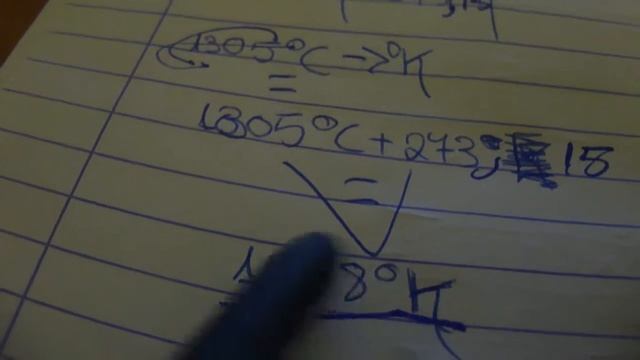 1305°C->°K
=
1305°C+273,15
=
8°K